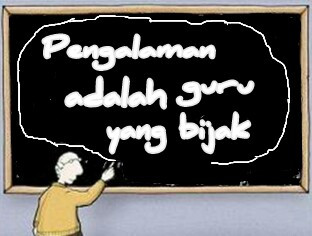 Pengalaman
adalah guru
yang bijak